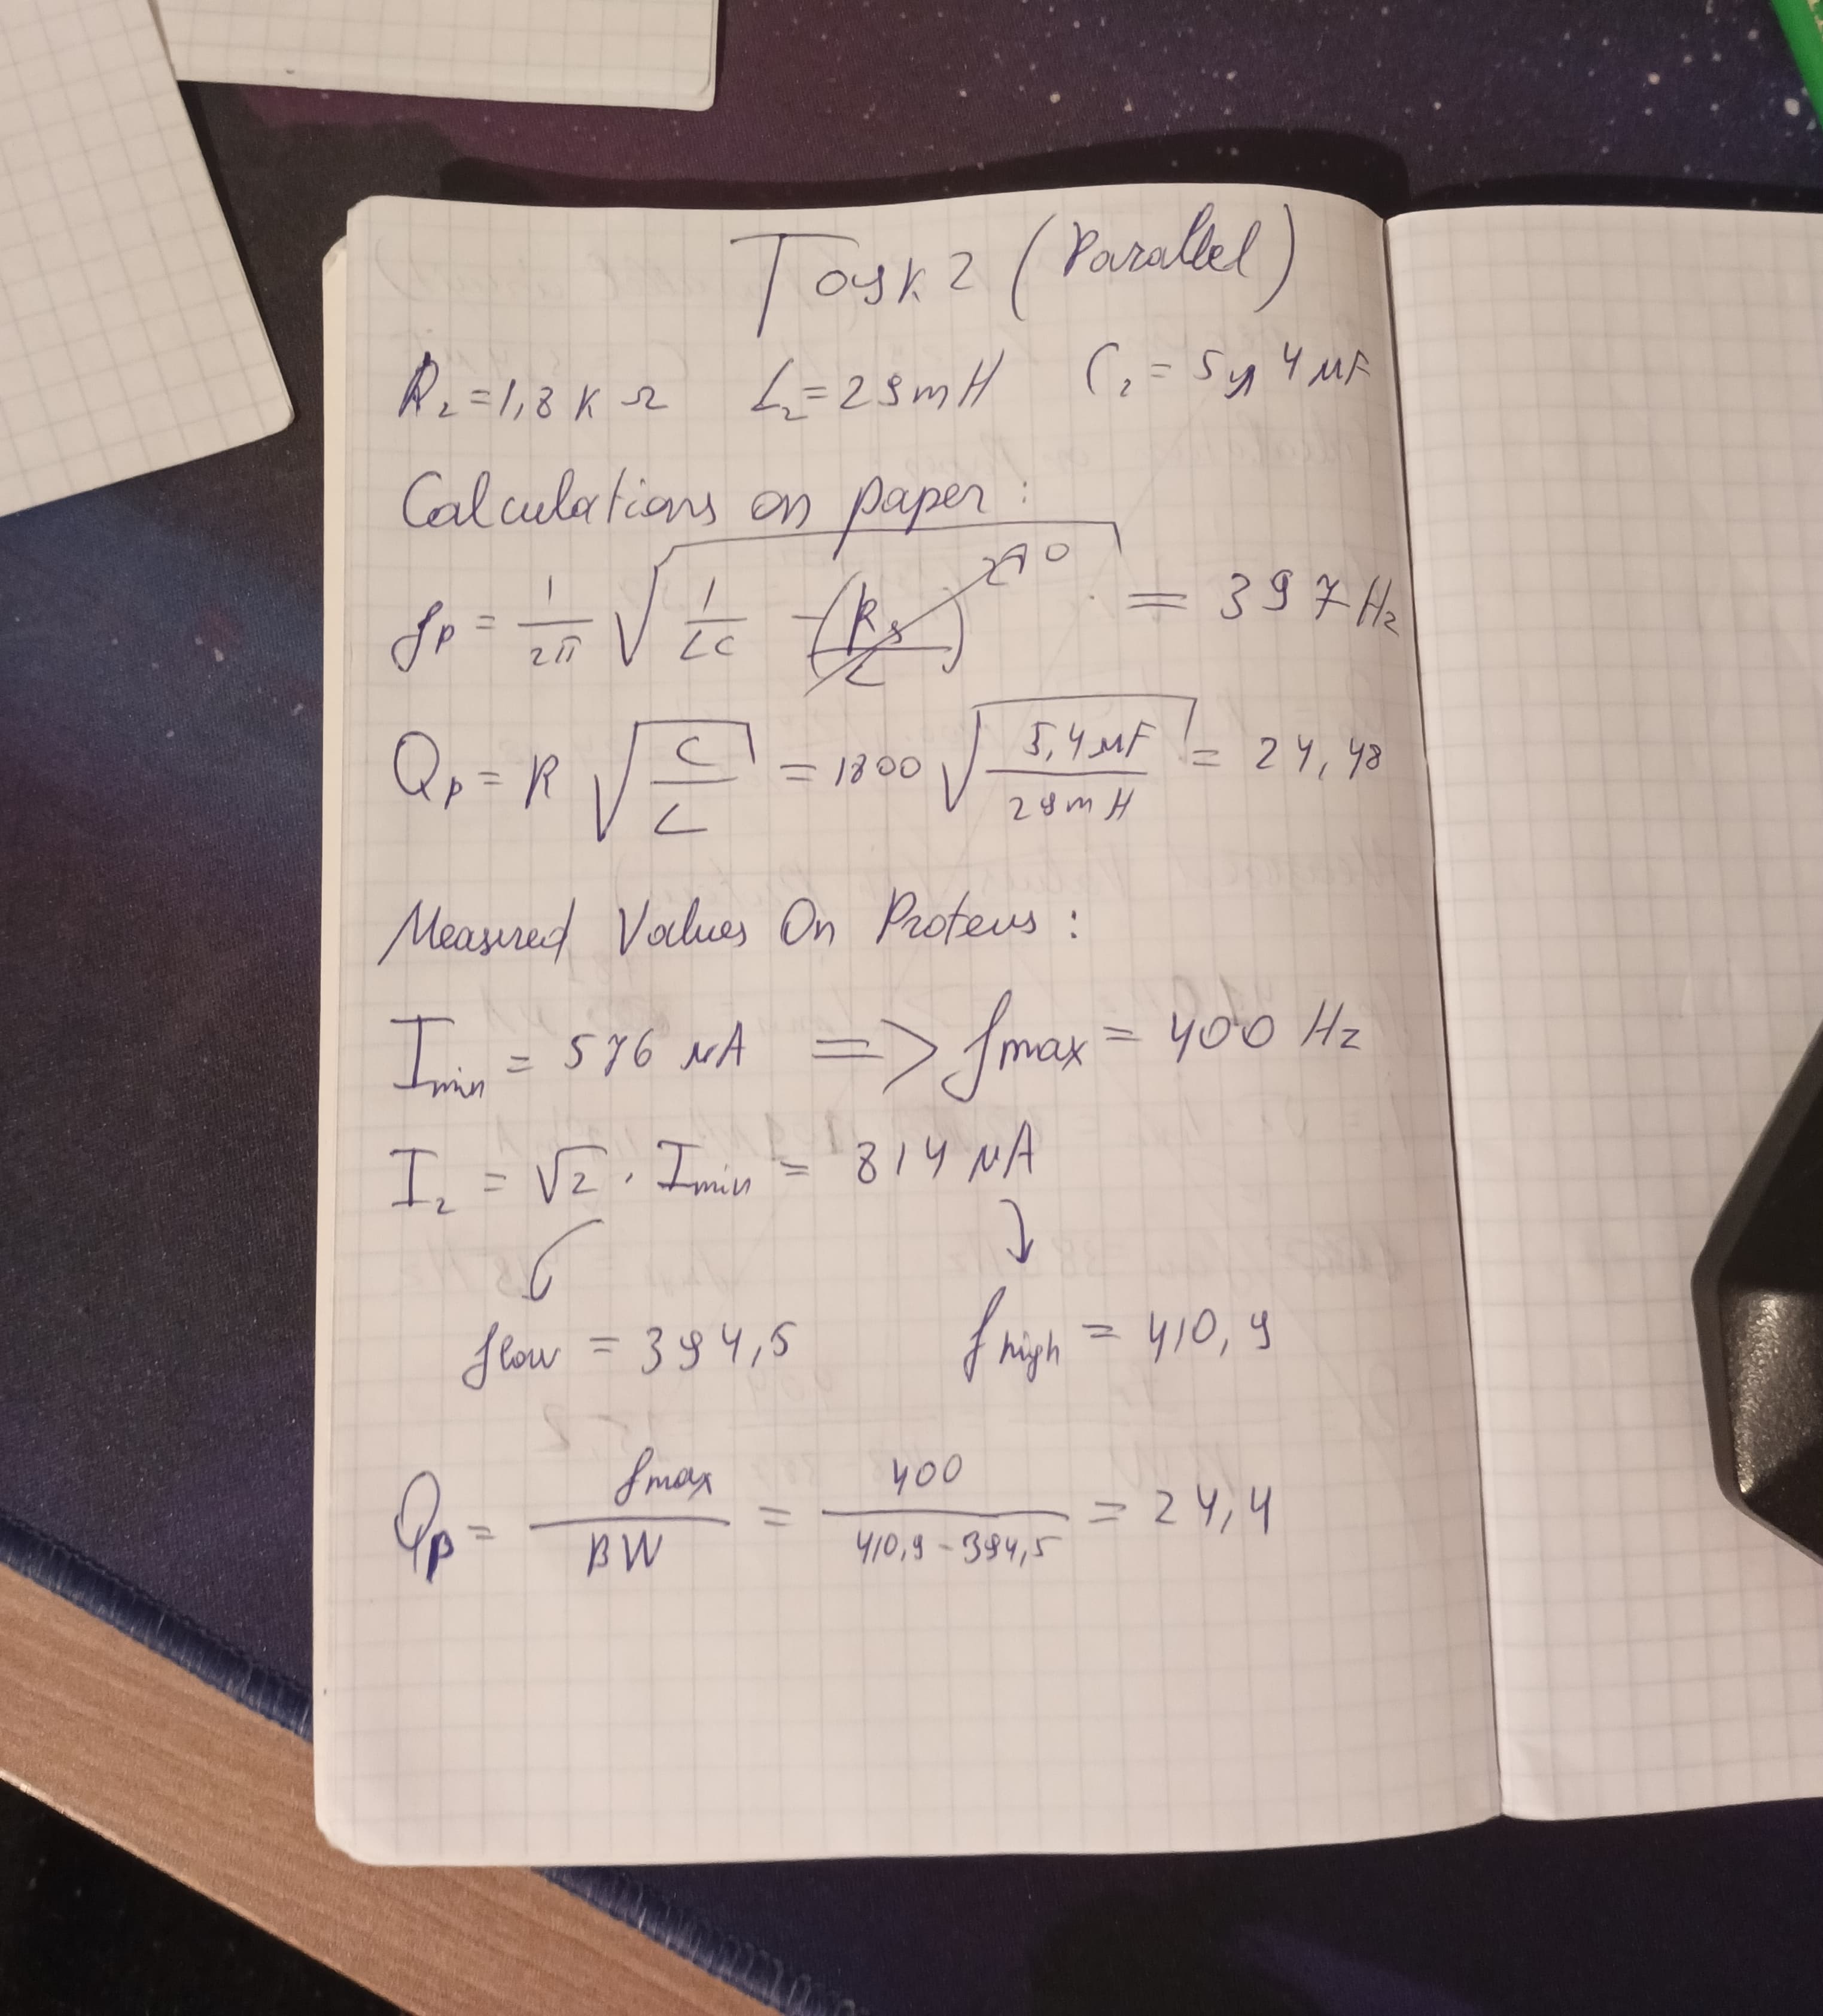 Task 2 (Parallel)
R₂ = 1,8 K Ω L₂ = 29 mH C₂ = 5,4 μF
Calculations on paper:
fp = 1/2π √(1/LC - (Rs/L)) ↗0 = 397 Hz
Qp = R √(C/L) = 1800 √(5,4 μF/29 mH) = 24,48
Measured Values On Proteus:
Imin = 576 μA => fmax = 400 Hz
I₂ = √2 · Imin = 814 μA
flow = 394,5 fhigh = 410,9
Qp = fmax/BW = 400/(410,9 - 394,5) = 24,4